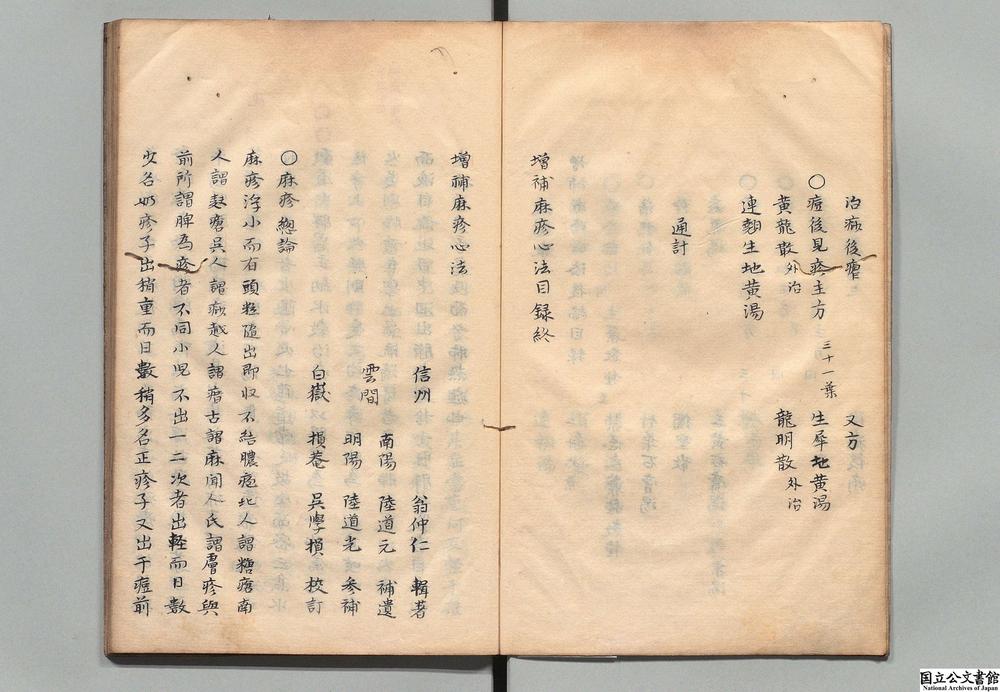 治痲後瘡
○痘後見疹主方 三十一葉
黄龍散 外治
○連翹生地黄湯
又方
生犀地黄湯
龍明散 外治
通計
增補麻疹心法目録終
增補麻疹心法
信州 翁仲仁 輯著
南陽 陸道元 補遺
雲間
明陽 陸道光 参補
白嶽 損菴 呉學損 校訂
○麻疹總論
麻疹浮小而有頭粒隨出即收不結膿痘北人謂糖瘡南
人謂麩瘡呉人謂痧越人謂瘄古謂麻聞人氏謂膚疹與
前所謂脾為疹者不同小児不出一二次者出軽而日數
少名奶疹子出稍重而日數稍多名正疹子又出于痘前
国立公文書館
National Archives of Japan